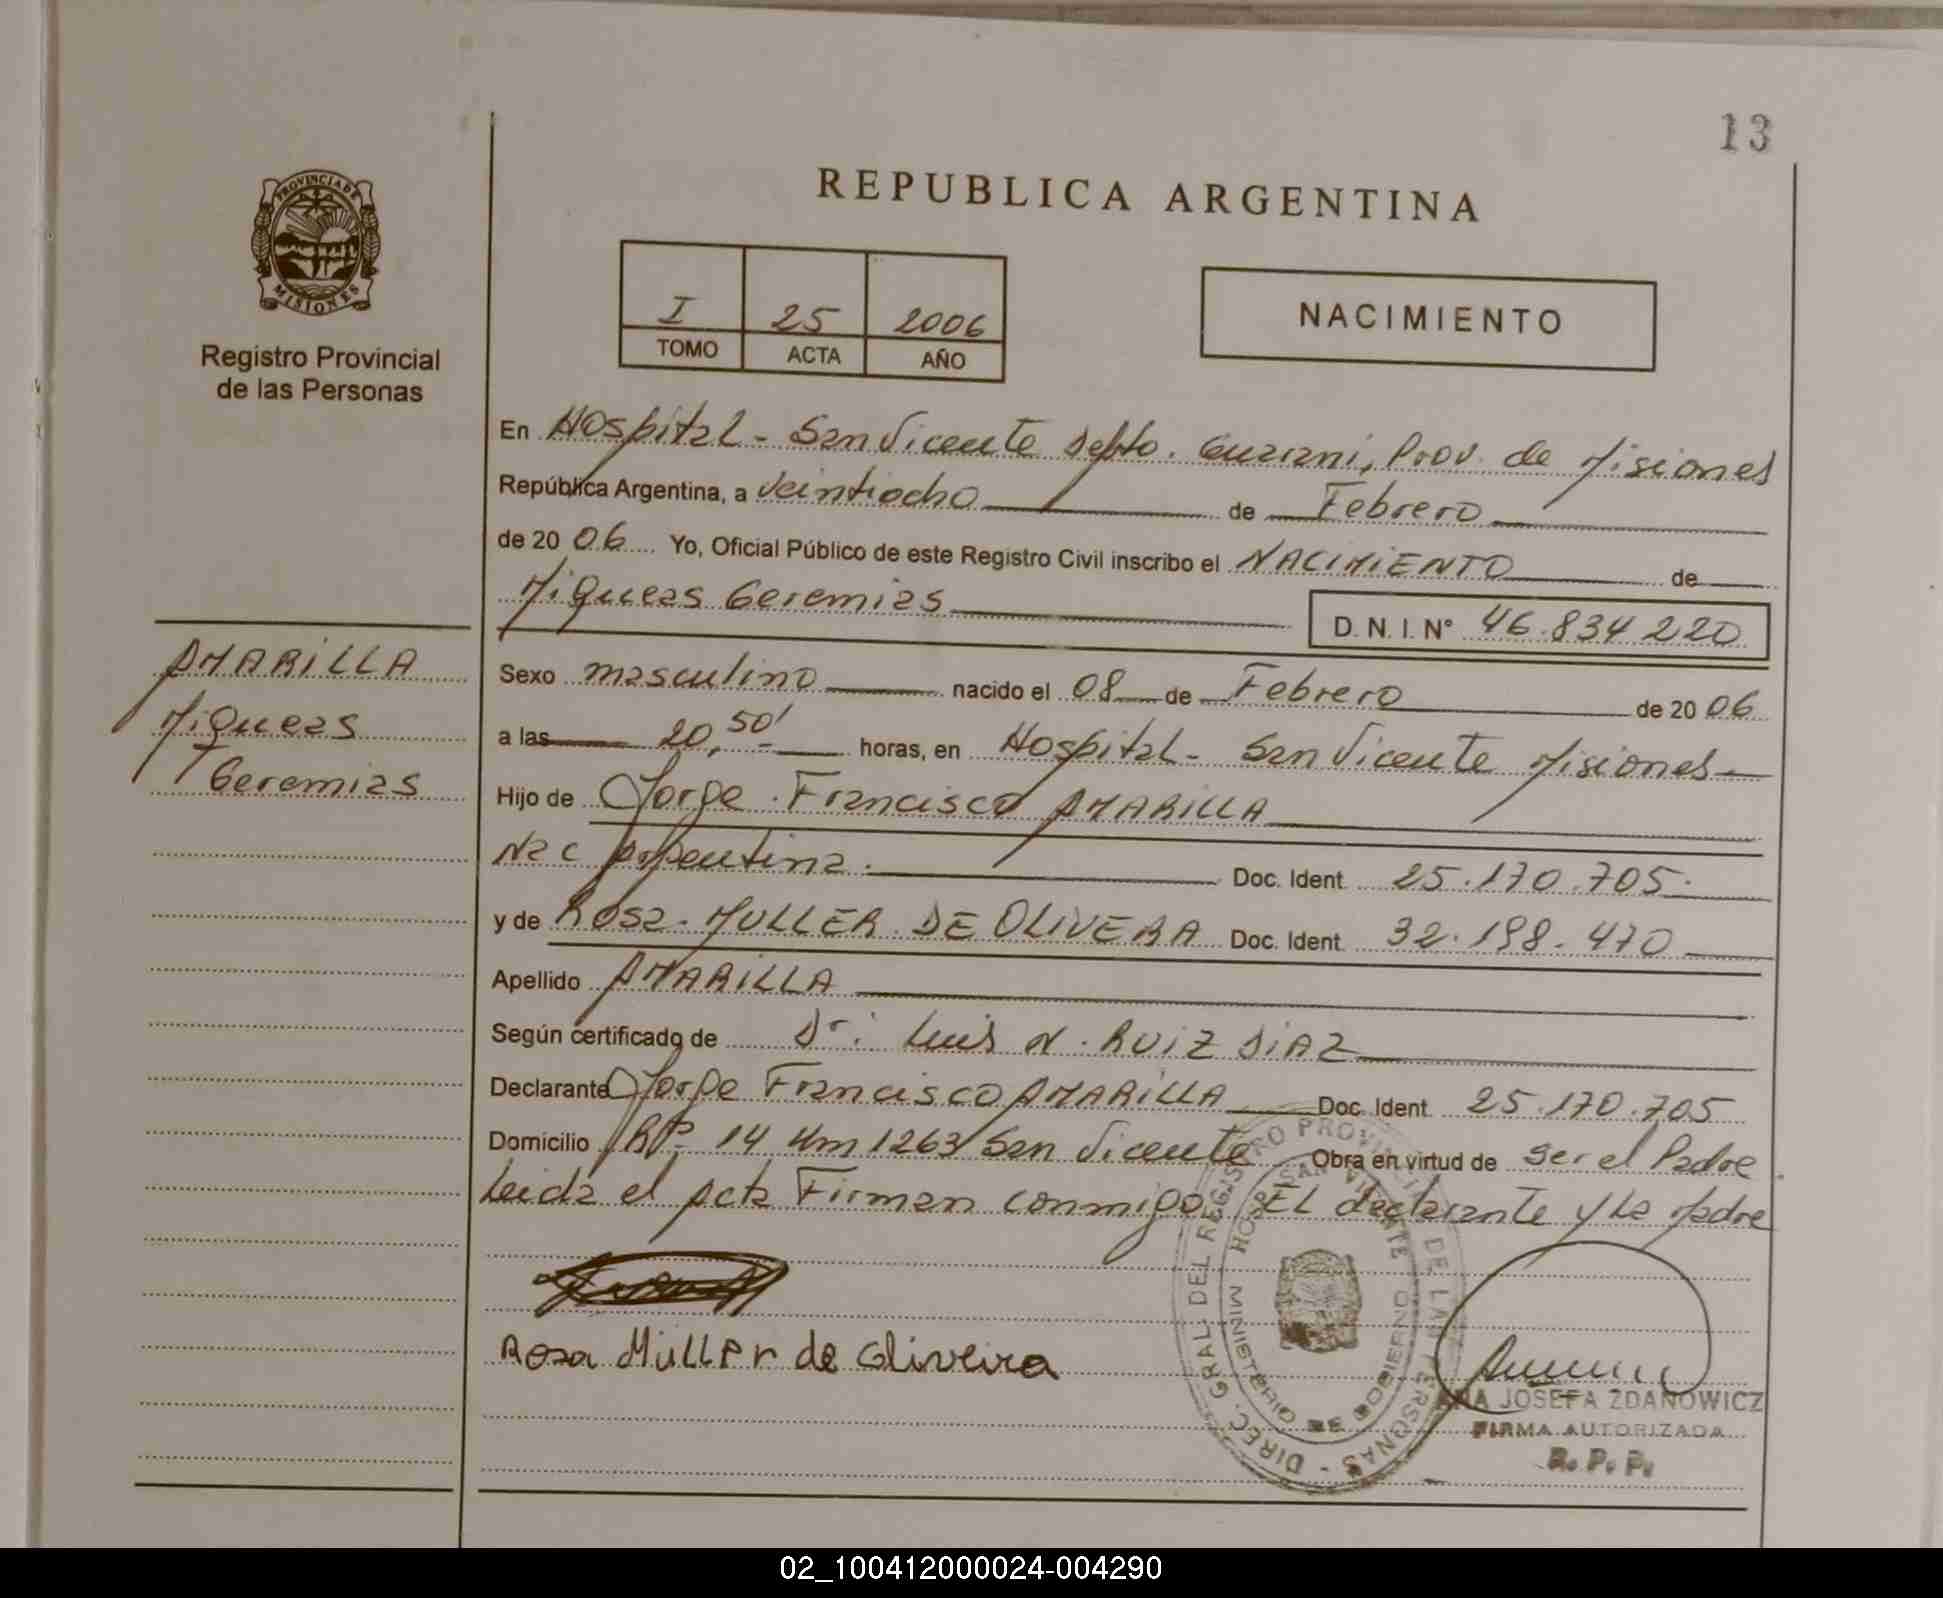 13
PROVINCIA DE
MISIONES
Registro Provincial
de las Personas
REPUBLICA ARGENTINA
I 25 2006
TOMO ACTA AÑO
NACIMIENTO
En Hospital - San Vicente Depto. Guarani, Prov. de Misiones
República Argentina, a veintiocho de Febrero
de 20 06 Yo, Oficial Público de este Registro Civil inscribo el NACIMIENTO de
Miqueas Geremias
D. N. I. N° 46.834 220
AMARILLA
Miqueas
Geremias
Sexo masculino nacido el 08 de Febrero de 20 06
a las 20,50' horas, en Hospital - San Vicente Misiones
Hijo de Jorge Francisco AMARILLA
Nac Argentina. Doc. Ident. 25.170.705.
y de Rosa MULLER DE OLIVERA Doc. Ident. 32.198.470
Apellido AMARILLA
Según certificado de Dr: Luis N. RUIZ DIAZ
Declarante Jorge Francisco AMARILLA Doc. Ident. 25.170.705
Domicilio RP. 14 Km 1263 San Vicente Obra en virtud de ser el Padre
Leida el acta Firman conmigo EL declarante y La Madre
Rosa Müller de Oliveira
DIREC. GRAL. DEL REGISTRO PROVINCIAL DE LAS PERSONAS -
HOSP. SAN VICENTE
MINISTERIO DE GOBIERNO
ANA JOSEFA ZDANOWICZ
FIRMA AUTORIZADA
R. P. P.
02_100412000024-004290